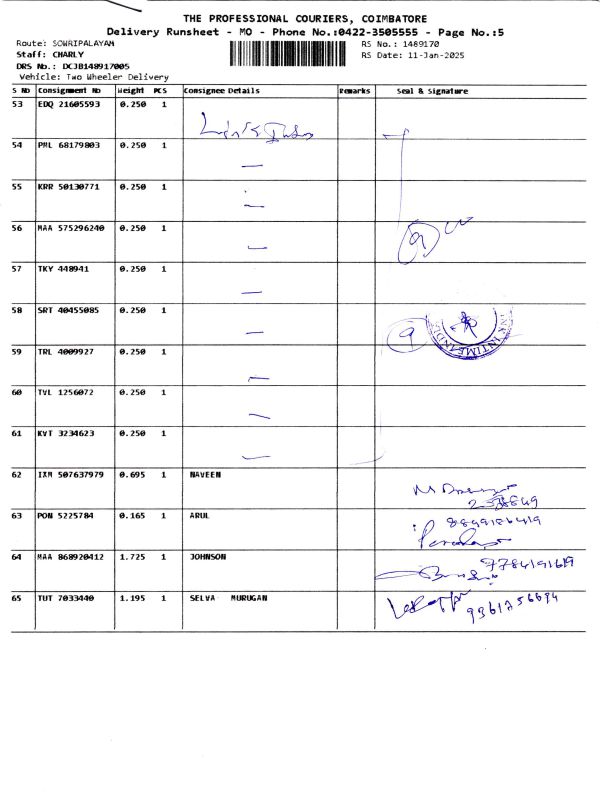 THE PROFESSIONAL COURIERS, COIMBATORE
Delivery Runsheet - MO - Phone No.:0422-3505555 - Page No.:5
Route: SOWRIPALAYAM RS No.: 1489170
Staff: CHARLY RS Date: 11-Jan-2025
DRS No.: DCJB148917005
Vehicle: Two Wheeler Delivery
S NO Consignment No Weight PCS Consignee Details Remarks Seal & Signature
53 EDQ 21605593 0.250 1
54 PML 68179803 0.250 1
55 KRR 50130771 0.250 1
56 MAA 575296240 0.250 1
9
57 TKY 448941 0.250 1
58 SRT 40455085 0.250 1
9 INTIME INDIA
59 TRL 4009927 0.250 1
60 TVL 1256072 0.250 1
61 KVT 3234623 0.250 1
62 IXM 507637979 0.695 1 NAVEEN
63 PON 5225784 0.165 1 ARUL
64 MAA 868920412 1.725 1 JOHNSON
65 TUT 7033440 1.195 1 SELVA MURUGAN